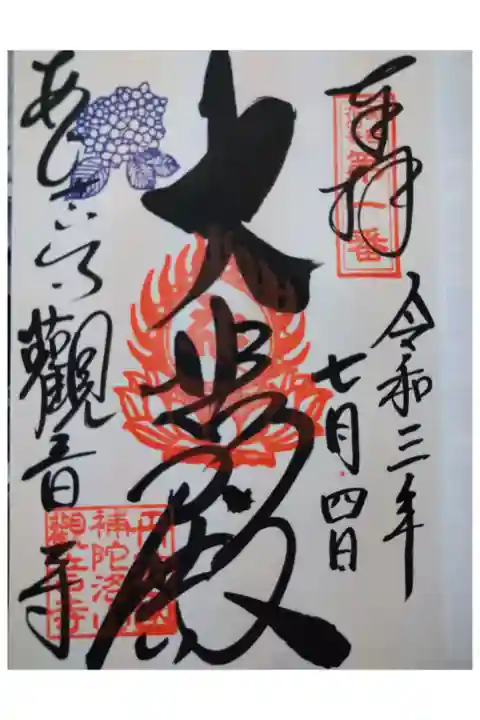 奉拝
第一番
令和三年
七月四日
大悲殿
觀音寺
補陀洛山
觀音寺